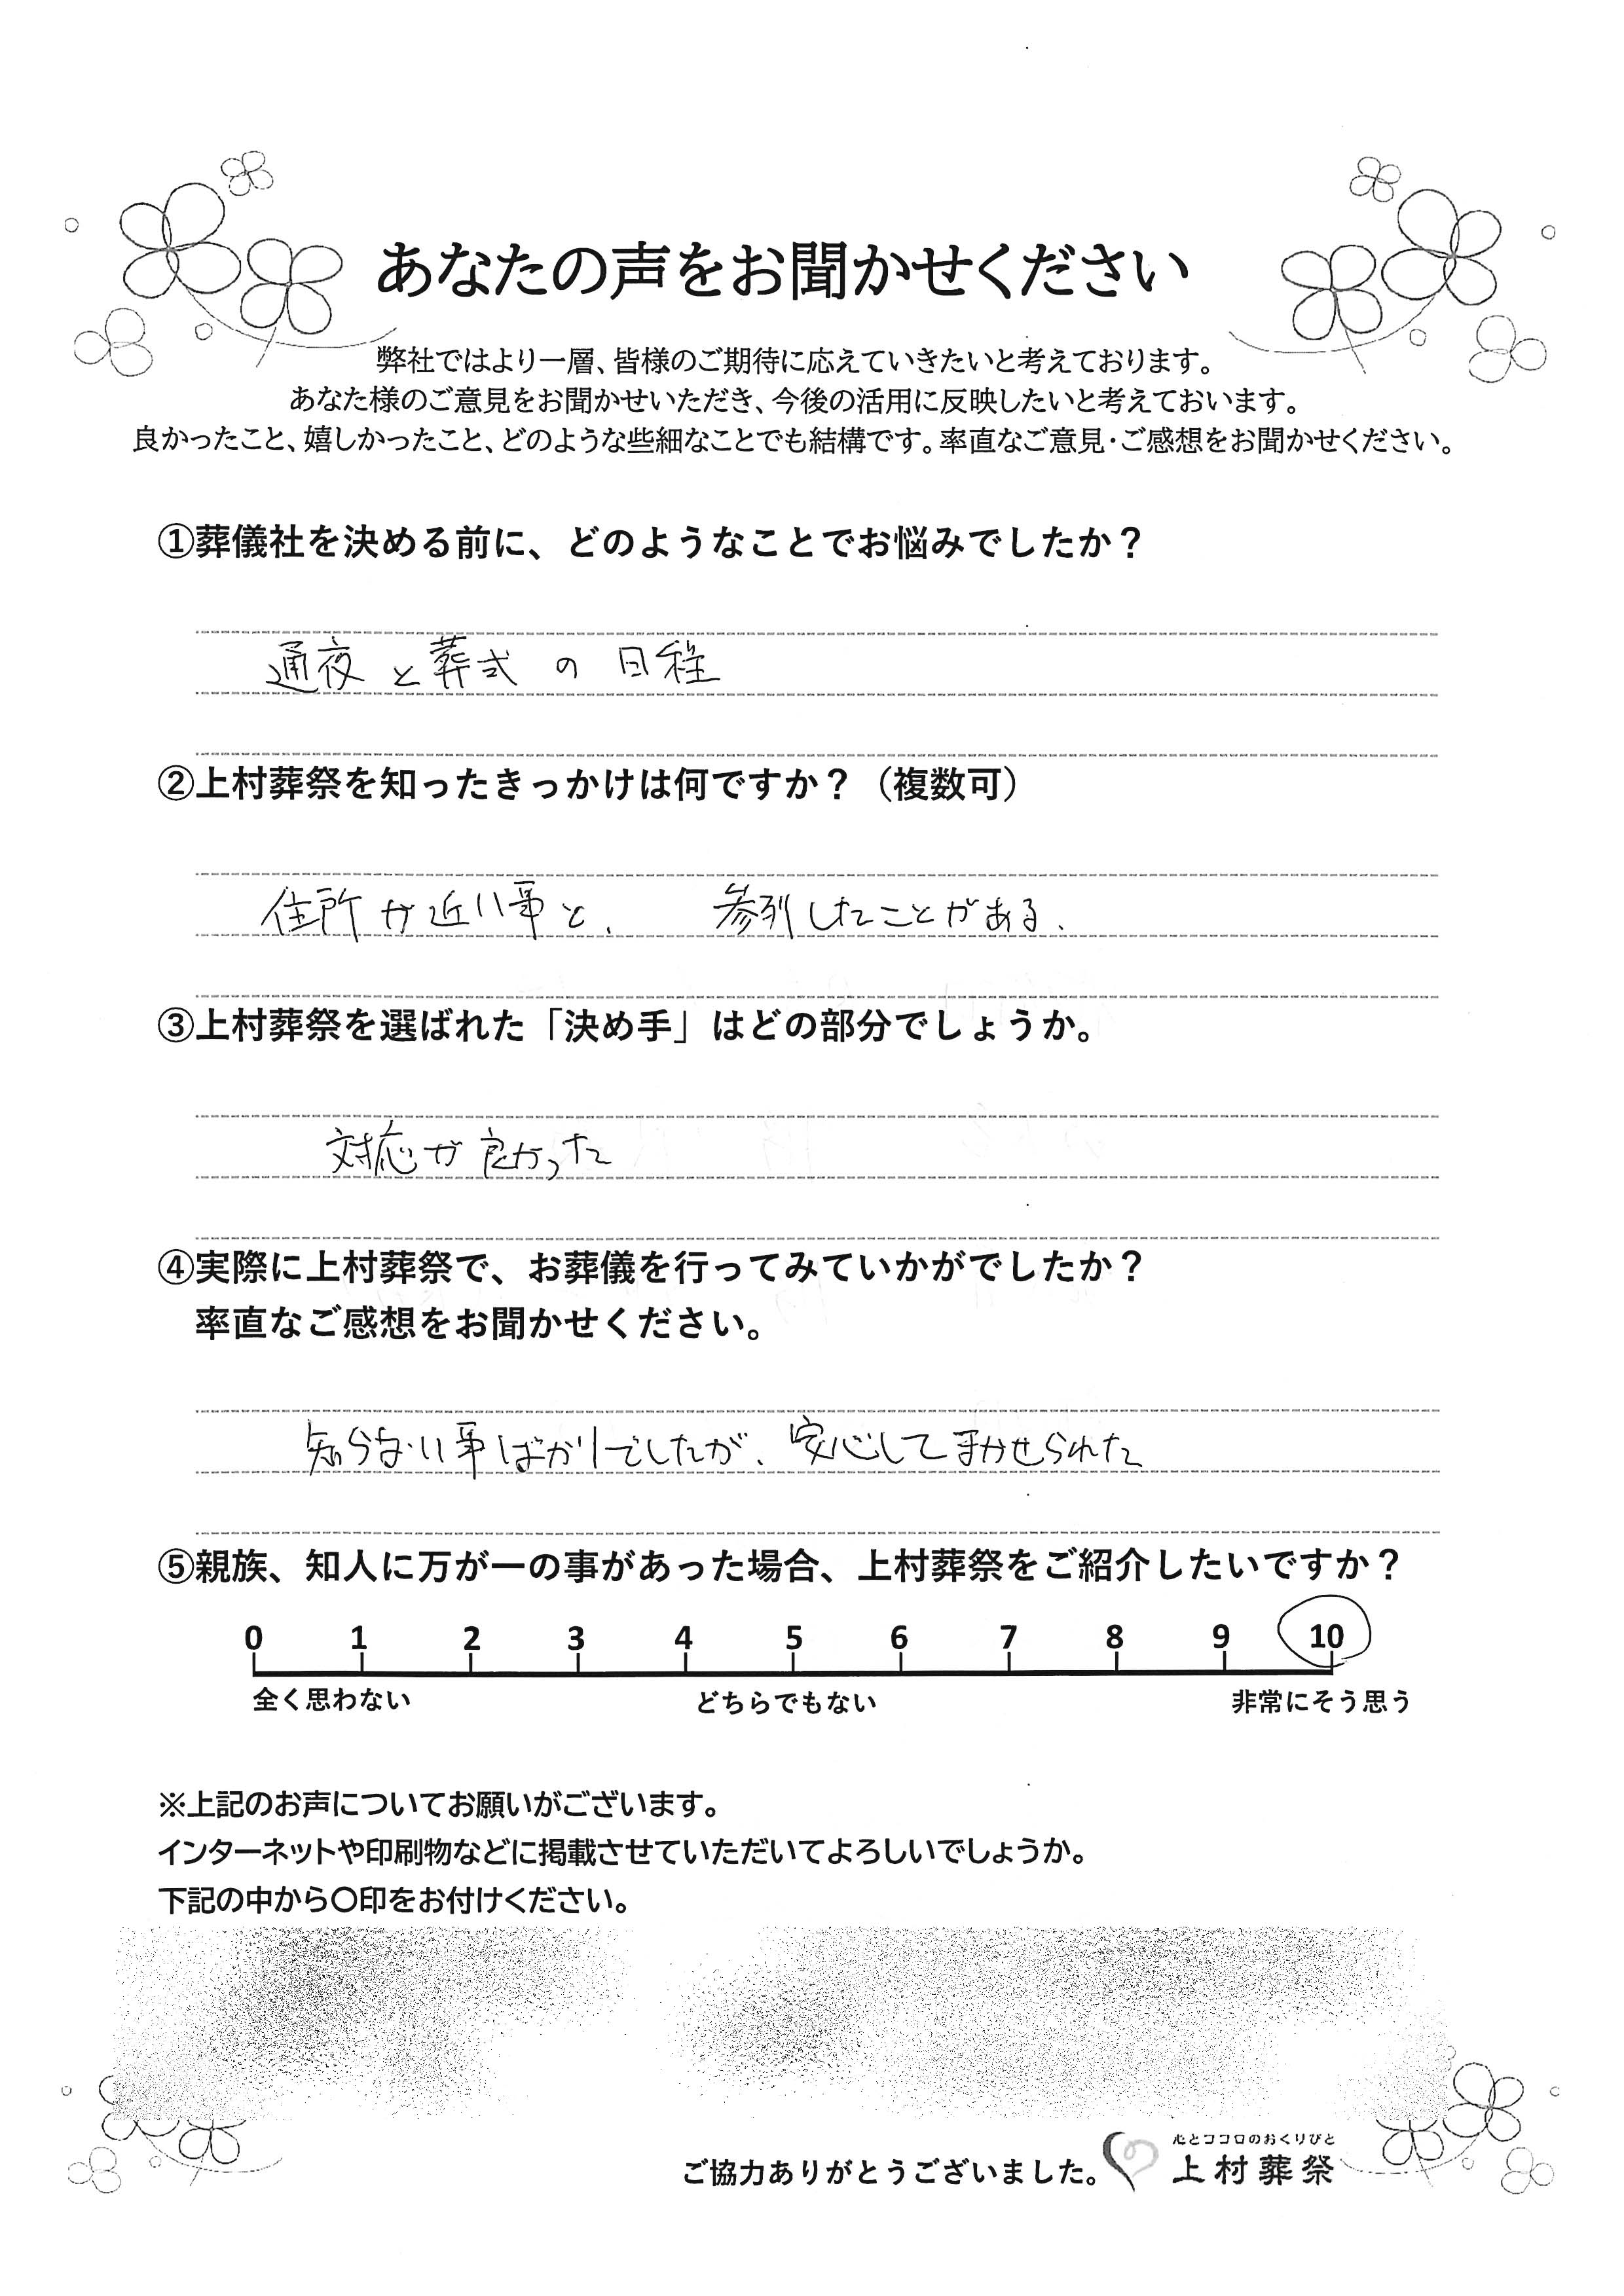 あなたの声をお聞かせください
弊社ではより一層、皆様のご期待に応えていきたいと考えております。
あなた様のご意見をお聞かせいただき、今後の活用に反映したいと考えておいます。
良かったこと、嬉しかったこと、どのような些細なことでも結構です。率直なご意見・ご感想をお聞かせください。
①葬儀社を決める前に、どのようなことでお悩みでしたか？
通夜と葬式の日程
②上村葬祭を知ったきっかけは何ですか？（複数可）
住所が近い事と、 参列したことがある、
③上村葬祭を選ばれた「決め手」はどの部分でしょうか。
対応が良かった
④実際に上村葬祭で、お葬儀を行ってみていかがでしたか？
率直なご感想をお聞かせください。
知らない事ばかりでしたが、安心してまかせられた
⑤親族、知人に万が一の事があった場合、上村葬祭をご紹介したいですか？
0 1 2 3 4 5 6 7 8 9 10
全く思わない どちらでもない 非常にそう思う
※上記のお声についてお願いがございます。
インターネットや印刷物などに掲載させていただいてよろしいでしょうか。
下記の中から〇印をお付けください。
心とココロのおくりびと
ご協力ありがとうございました。 上村葬祭